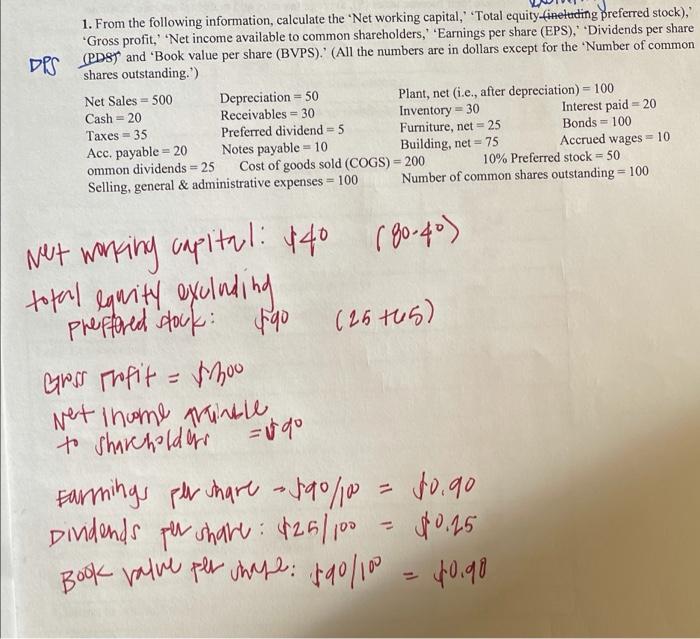 1. From the following information, calculate the 'Net working capital,' 'Total equity (including preferred stock),'
'Gross profit,' 'Net income available to common shareholders,' 'Earnings per share (EPS),' 'Dividends per share
DPS (PDS)' and 'Book value per share (BVPS).' (All the numbers are in dollars except for the 'Number of common
shares outstanding.')
Net Sales = 500 Depreciation = 50 Plant, net (i.e., after depreciation) = 100
Cash = 20 Receivables = 30 Inventory = 30 Interest paid = 20
Taxes = 35 Preferred dividend = 5 Furniture, net = 25 Bonds = 100
Acc. payable = 20 Notes payable = 10 Building, net = 75 Accrued wages = 10
ommon dividends = 25 Cost of goods sold (COGS) = 200 10% Preferred stock = 50
Selling, general & administrative expenses = 100 Number of common shares outstanding = 100
Net working capital: $40 (80-40)
total equity excluding
preffered stock: $90 (25+65)
Gross Profit = $300
Net Income
to shareholders = $90
Earnings per share = $90/100 = $0.90
Dividends per share: $25/100 = $0.25
Book value per share: $90/100 = $0.90